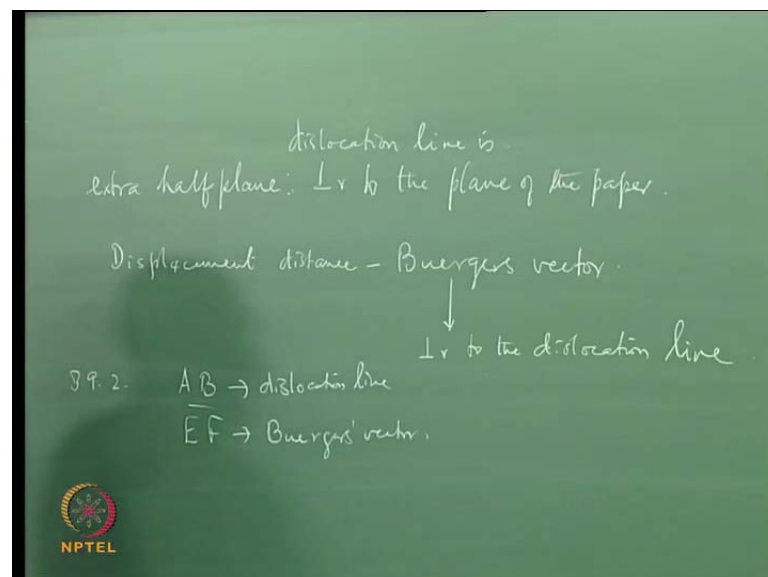 dislocation line is
extra half plane: ⊥r to the plane of the paper.
Displacement distance – Buergers vector.
↓
⊥r to the dislocation line
39.2. AB → dislocation line
EF → Buergers' vector.
NPTEL